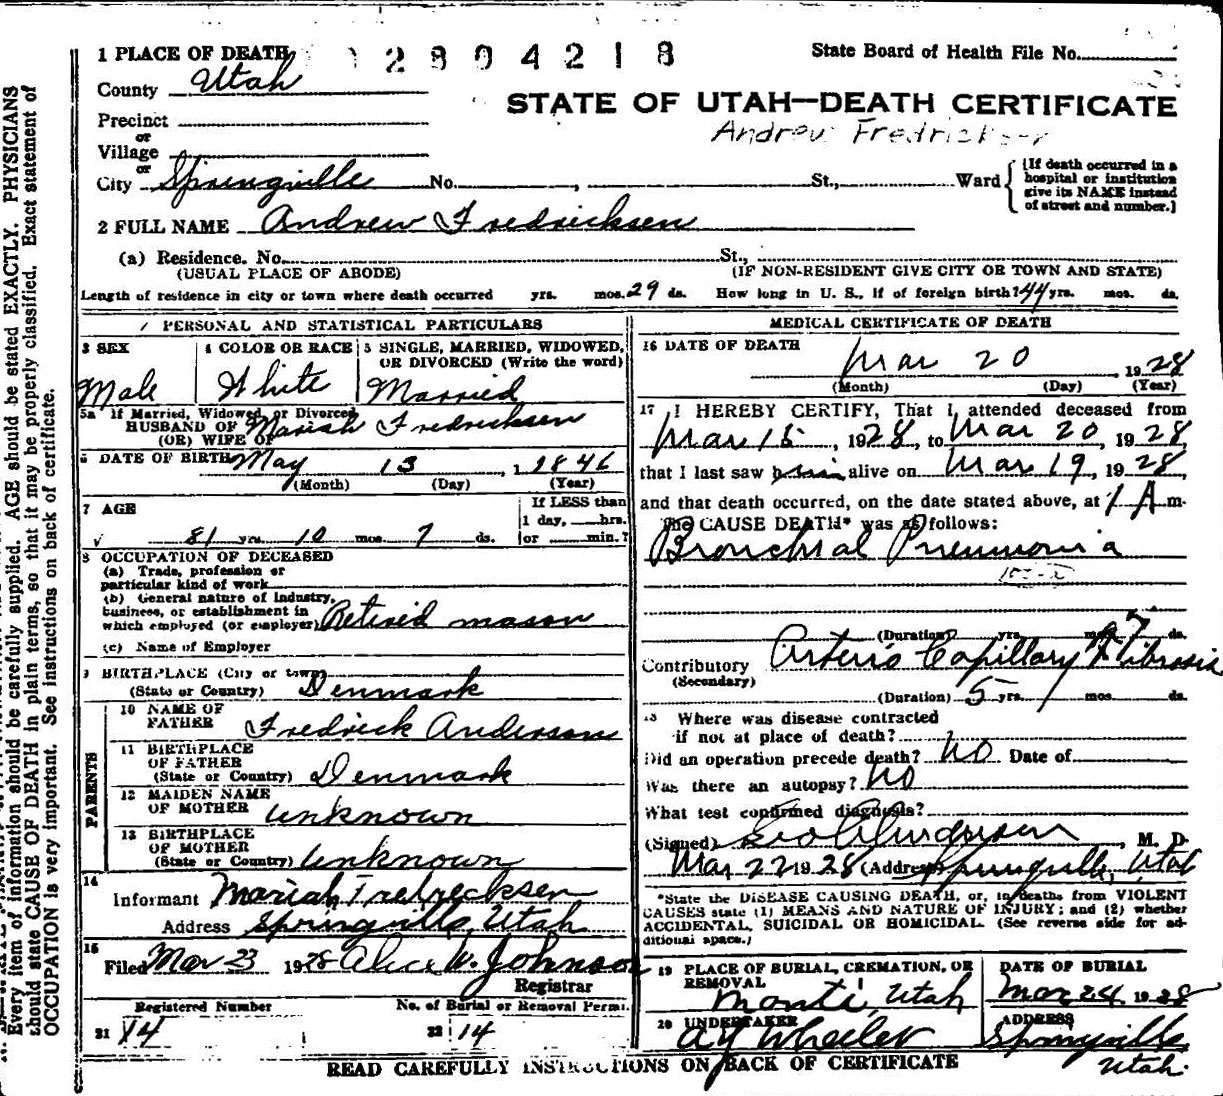 1 PLACE OF DEATH
2804218
State Board of Health File No.
County Utah
STATE OF UTAH—DEATH CERTIFICATE
Precinct
or
Andrew Fredricksen
Village
or
City Springville No. , St., Ward
[If death occurred in a
hospital or institution
give its NAME instead
of street and number.]
2 FULL NAME Andrew Fredricksen
(a) Residence. No. St.,
(USUAL PLACE OF ABODE) (IF NON-RESIDENT GIVE CITY OR TOWN AND STATE)
Length of residence in city or town where death occurred yrs. mos. 29 ds. How long in U. S., if of foreign birth? 44 yrs. mos. ds.
PERSONAL AND STATISTICAL PARTICULARS
3 SEX 4 COLOR OR RACE 5 SINGLE, MARRIED, WIDOWED,
OR DIVORCED (Write the word)
Male White Married
5a If Married, Widowed, or Divorced
HUSBAND OF Mariah Fredricksen
(OR) WIFE OF
6 DATE OF BIRTH May 13, 1846
(Month) (Day) (Year)
7 AGE If LESS than
1 day, hrs.
81 yrs. 10 mos. 7 ds. or min.?
8 OCCUPATION OF DECEASED
(a) Trade, profession or
particular kind of work
(b) General nature of Industry,
business, or establishment in
which employed (or employer) Retired mason
(c) Name of Employer
9 BIRTHPLACE (City or town)
(State or Country) Denmark
PARENTS
10 NAME OF
FATHER Fredrick Anderson
11 BIRTHPLACE
OF FATHER
(State or Country) Denmark
12 MAIDEN NAME
OF MOTHER unknown
13 BIRTHPLACE
OF MOTHER
(State or Country) Unknown
14
Informant Mariah Fredricksen
Address Springville, Utah
15
Filed Mar 23 1928 Alice W. Johnson
Registrar
Registered Number No. of Burial or Removal Permit
21 14 22 14
MEDICAL CERTIFICATE OF DEATH
16 DATE OF DEATH
Mar 20, 1928
(Month) (Day) (Year)
17 I HEREBY CERTIFY, That I attended deceased from
Mar 15, 1928, to Mar 20, 1928,
that I last saw him alive on Mar 19, 1928
and that death occurred, on the date stated above, at 1 A m.
The CAUSE DEATH* was as follows:
Bronchial Pneumonia
(Duration) yrs. mos. 7 ds.
Contributory Arterio Capillary Fibrosis
(Secondary)
(Duration) 5 yrs. mos. ds.
18 Where was disease contracted
if not at place of death?
Did an operation precede death? NO Date of
Was there an autopsy? NO
What test confirmed diagnosis?
(Signed) Geo Anderson, M. D.
Mar 22 1928 (Address) Springville, Utah
*State the DISEASE CAUSING DEATH, or, in deaths from VIOLENT
CAUSES state (1) MEANS AND NATURE OF INJURY; and (2) whether
ACCIDENTAL, SUICIDAL OR HOMICIDAL. (See reverse side for ad-
ditional space.)
19 PLACE OF BURIAL, CREMATION, OR
REMOVAL
Monti, Utah
DATE OF BURIAL
Mar 24 1928
20 UNDERTAKER
A Y Wheeler
ADDRESS
Springville
Utah.
READ CAREFULLY INSTRUCTIONS ON BACK OF CERTIFICATE
Every item of information should be carefully supplied. AGE should be stated EXACTLY. PHYSICIANS
should state CAUSE OF DEATH in plain terms, so that it may be properly classified. Exact statement of
OCCUPATION is very important. See instructions on back of certificate.